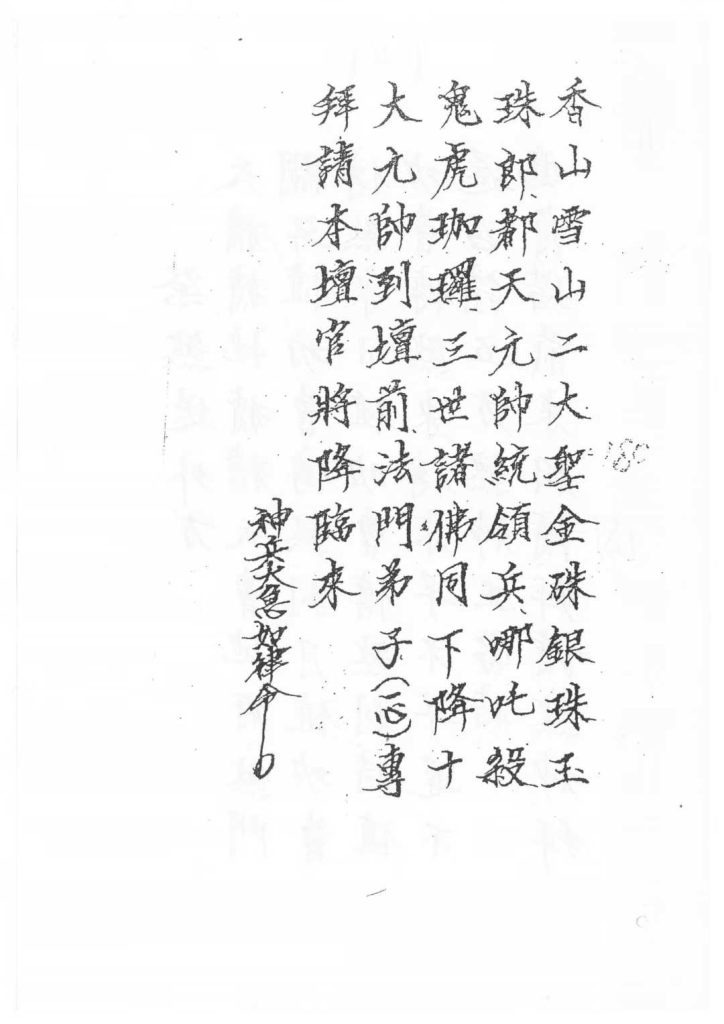 香山雪山二大聖金硃銀珠玉
珠郎都天元帥統領兵哪吒殺
鬼虎珈𤫩三世諸佛同下降十
大元帥到壇前法門弟子(一心)專
拜請本壇官將降臨來
神兵火急如律令
180